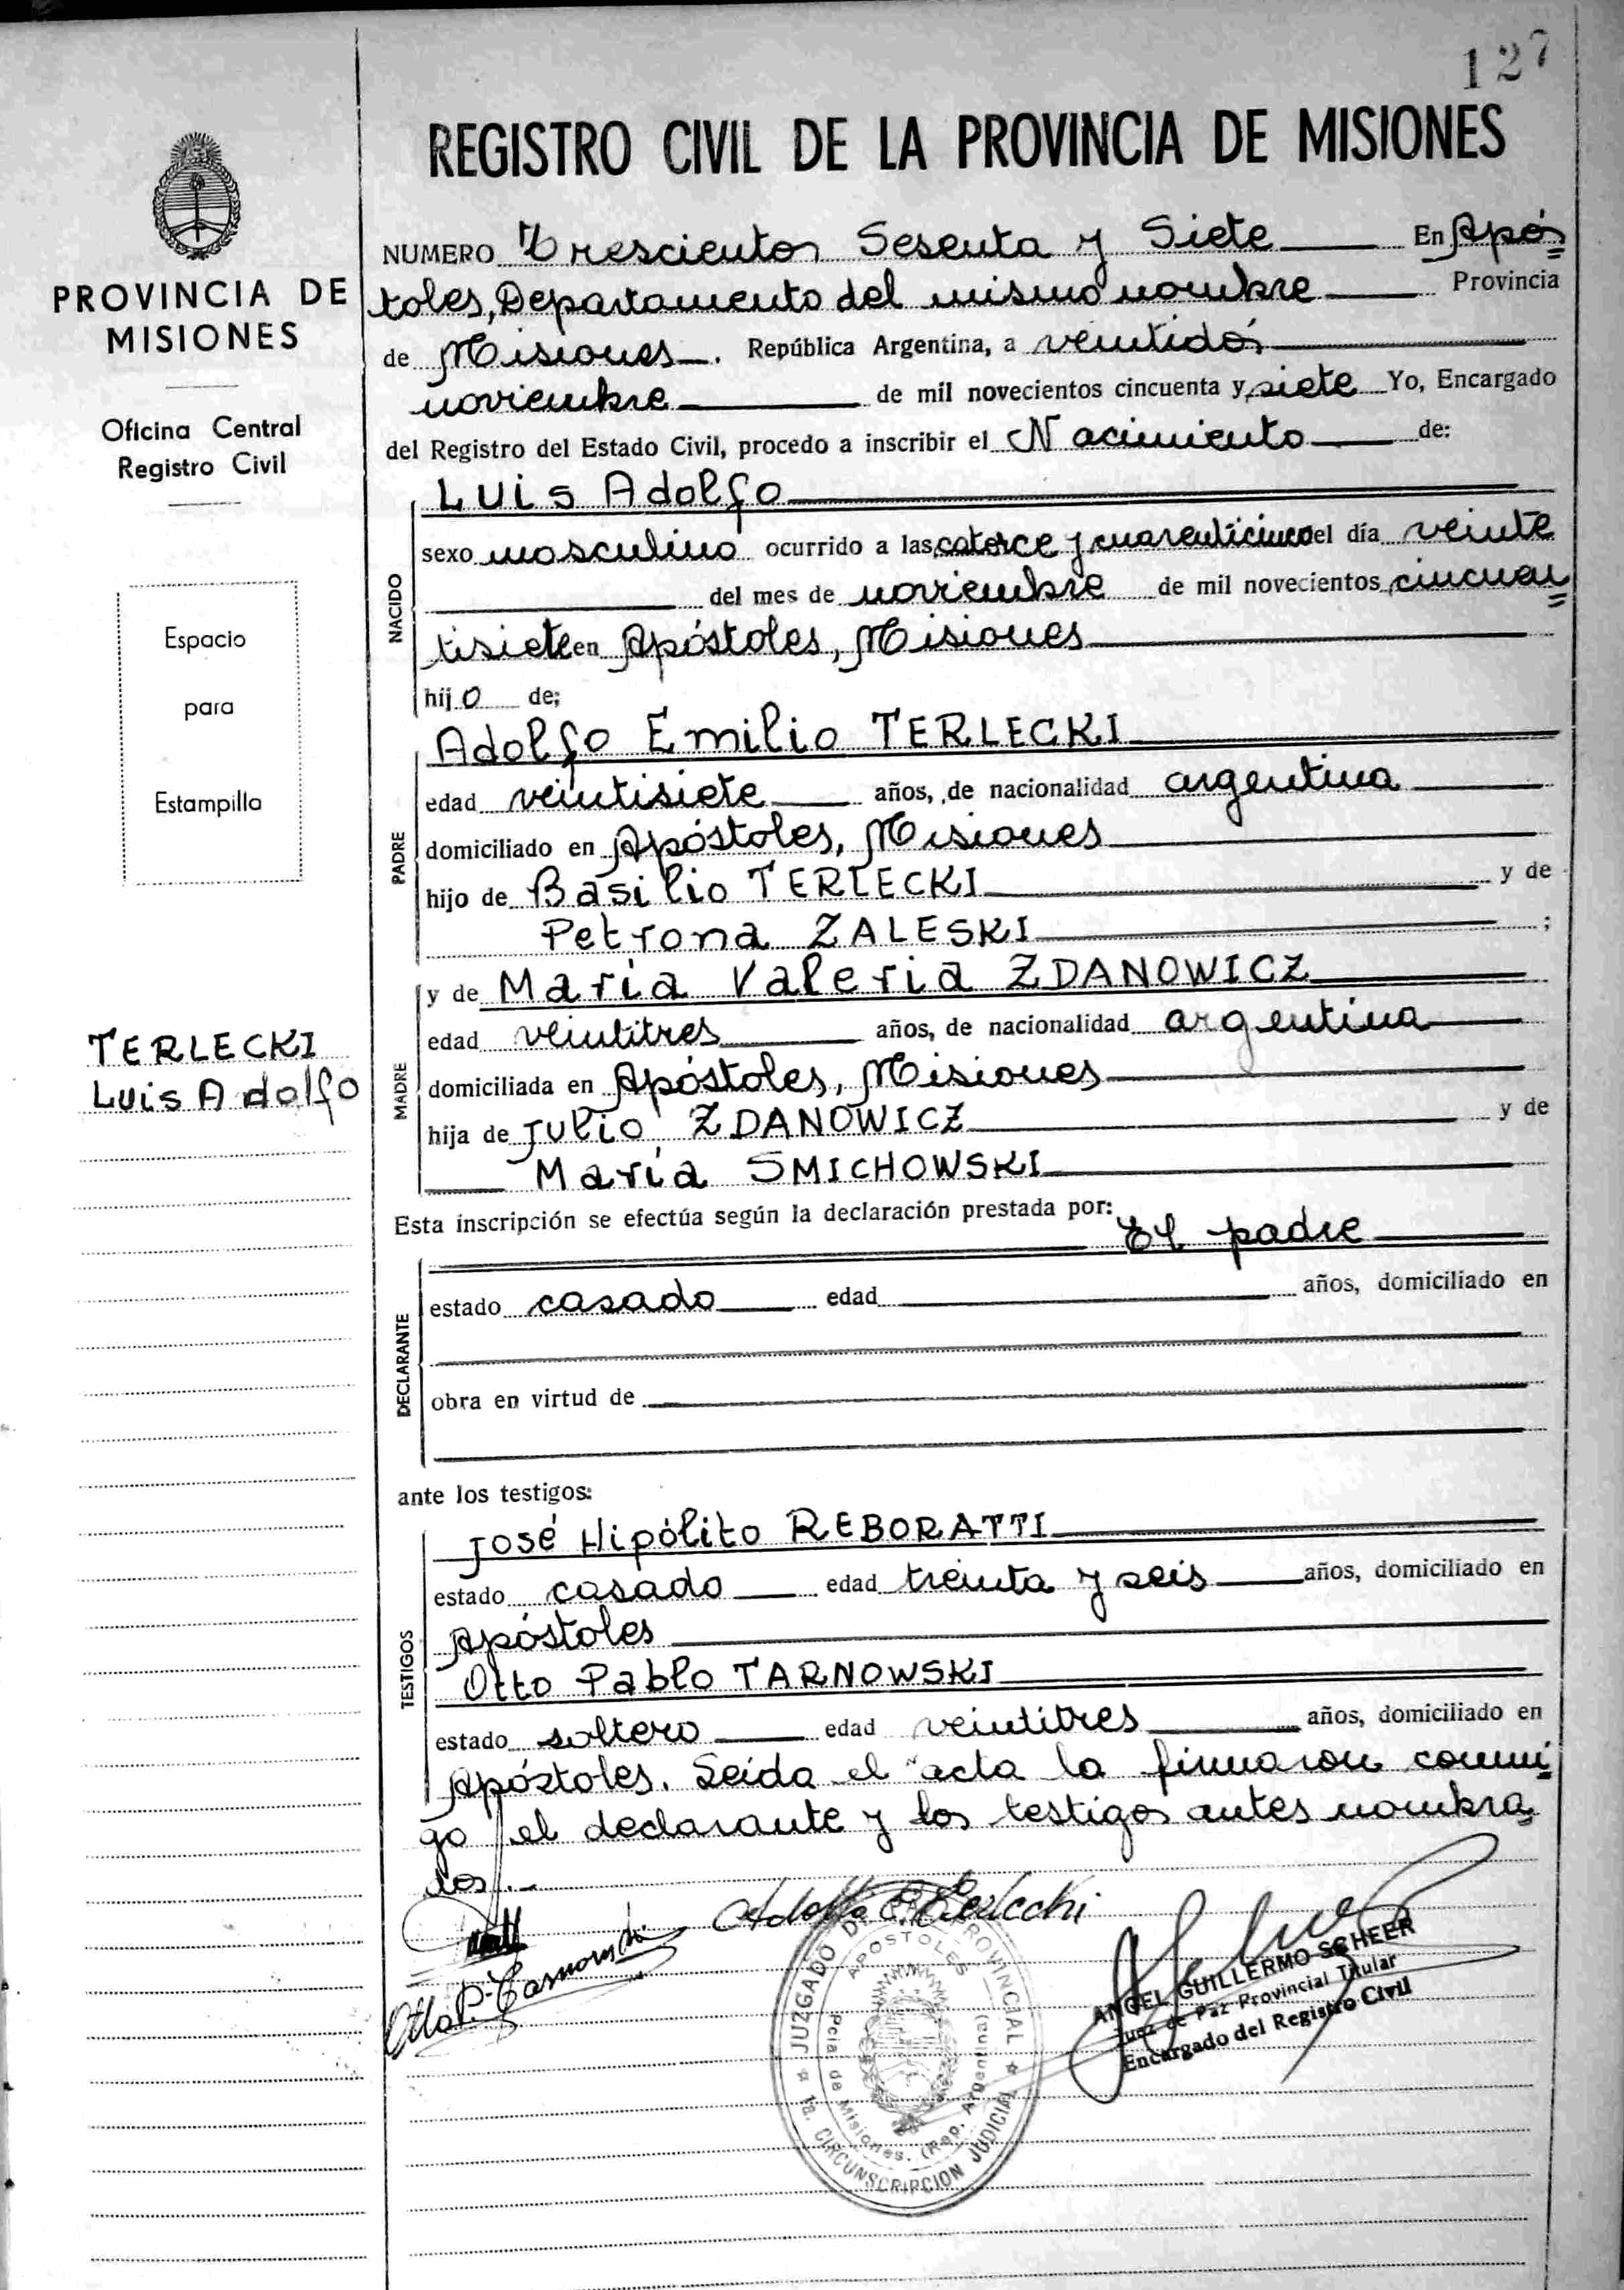 127
REGISTRO CIVIL DE LA PROVINCIA DE MISIONES
PROVINCIA DE
MISIONES
Oficina Central
Registro Civil
Espacio
para
Estampilla
TERLECKI
Luis Adolfo
NUMERO Trescientos Sesenta y Siete En Após
toles, Departamento del mismo nombre Provincia
de Misiones. República Argentina, a veintidós
noviembre de mil novecientos cincuenta y siete Yo, Encargado
del Registro del Estado Civil, procedo a inscribir el Nacimiento de:
NACIDO
Luis Adolfo
sexo masculino ocurrido a las catorce y cuarenticinco del día veinte
del mes de noviembre de mil novecientos cincuen=
tisiete en Apóstoles, Misiones
hijo de;
PADRE
Adolfo Emilio TERLECKI
edad veintisiete años, de nacionalidad argentina
domiciliado en Apóstoles, Misiones
hijo de Basilio TERLECKI y de
Petrona ZALESKI ;
MADRE
y de María Valeria ZDANOWICZ
edad veintitres años, de nacionalidad argentina
domiciliada en Apóstoles, Misiones
hija de Julio ZDANOWICZ y de
María SMICHOWSKI
Esta inscripción se efectúa según la declaración prestada por: El padre
DECLARANTE
estado casado edad años, domiciliado en
obra en virtud de
ante los testigos:
TESTIGOS
José Hipólito REBORATTI
estado casado edad treinta y seis años, domiciliado en
Apóstoles
Otto Pablo TARNOWSKI
estado soltero edad veintitres años, domiciliado en
Apóstoles. Leída el acta la firmaron conmi
go el declarante y los testigos antes nombra
dos.-
Adolfo E. Terlecki
Otto P. Tarnowski
JUZGADO DE PAZ PROVINCIAL
APOSTOLES
Pcia de Misiones. (Rep. Argentina)
1a. CIRCUNSCRIPCION JUDICIAL
ANGEL GUILLERMO SCHEER
Juez de Paz Provincial Titular
Encargado del Registro Civil